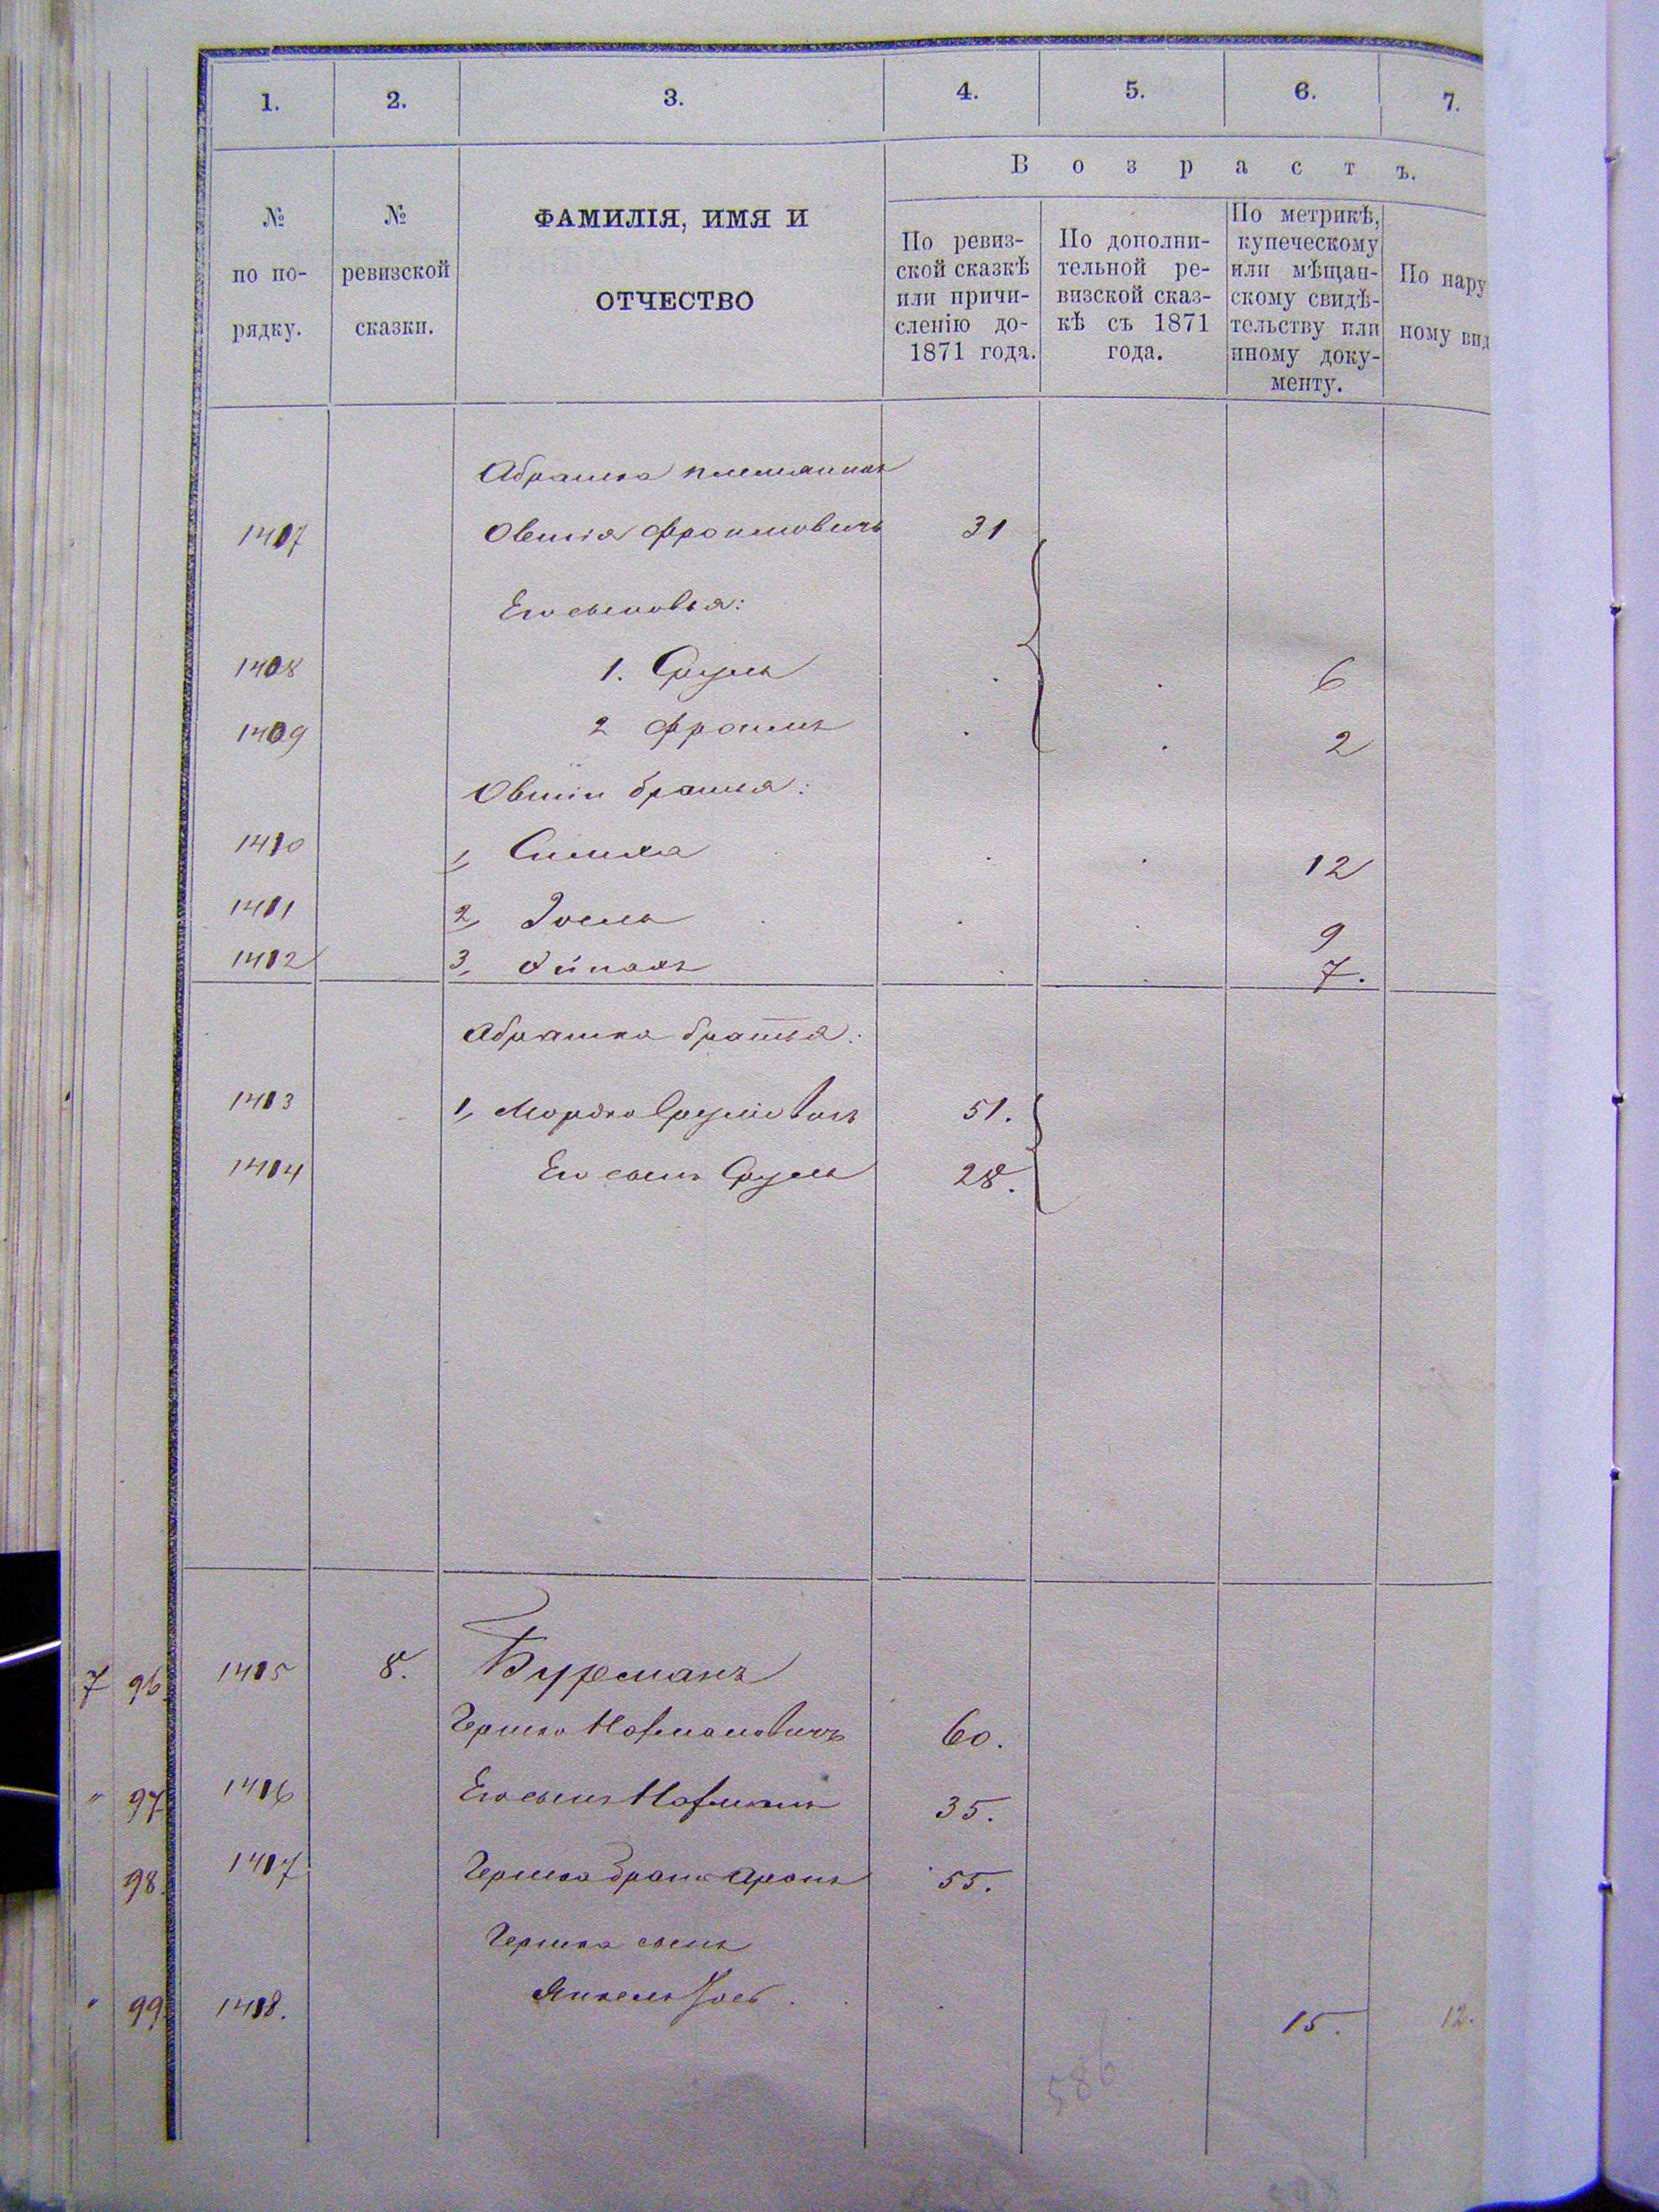 1. 2. 3. 4. 5. 6. 7.
Возрастъ.
№ по по-рядку.
№ ревизской сказки.
ФАМИЛІЯ, ИМЯ И
ОТЧЕСТВО
По ревиз-
ской сказкѣ
или причи-
сленію до-
1871 года.
По дополни-
тельной ре-
визской сказ-
кѣ съ 1871
года.
По метрикѣ,
купеческому
или мѣщан-
скому свидѣ-
тельству или
иному доку-
менту.
По нару
ному вид
Абрашка племянникъ
1407 Овшія Фроимовичъ 31
Его сыновья:
1408 1. Сруль 6
1409 2 Фроимъ 2
Овшіи братья:
1410 1, Симха 12
1411 2, Іосель 9
1412 3, 7.
Абрашка братья:
1413 1, Мордко Срулiовичъ 51.
1414 Его сынъ Сруль 28.
7 96. 1415 8. Бурманъ
Гершко Нахмановичъ 60.
" 97 1416 Его сынъ Нахманъ 35.
98. 1417 Гершка братъ Аронъ 55.
Гершка сынъ
" 99 1418. Янкель 15. 12.
586